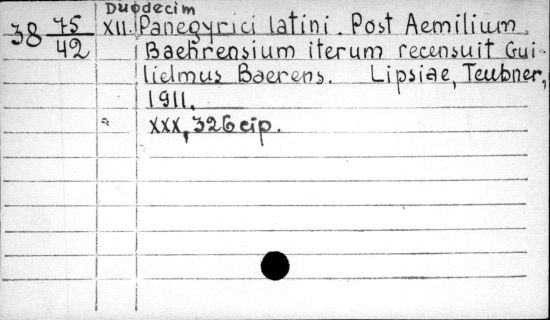 Duodecim
38 75/42 XII. Panegyrici latini. Post Aemilium
Baehrensium iterum recensuit Gui-
lielmus Baerens. Lipsiae, Teubner,
1911.
XXX, 326 cip.